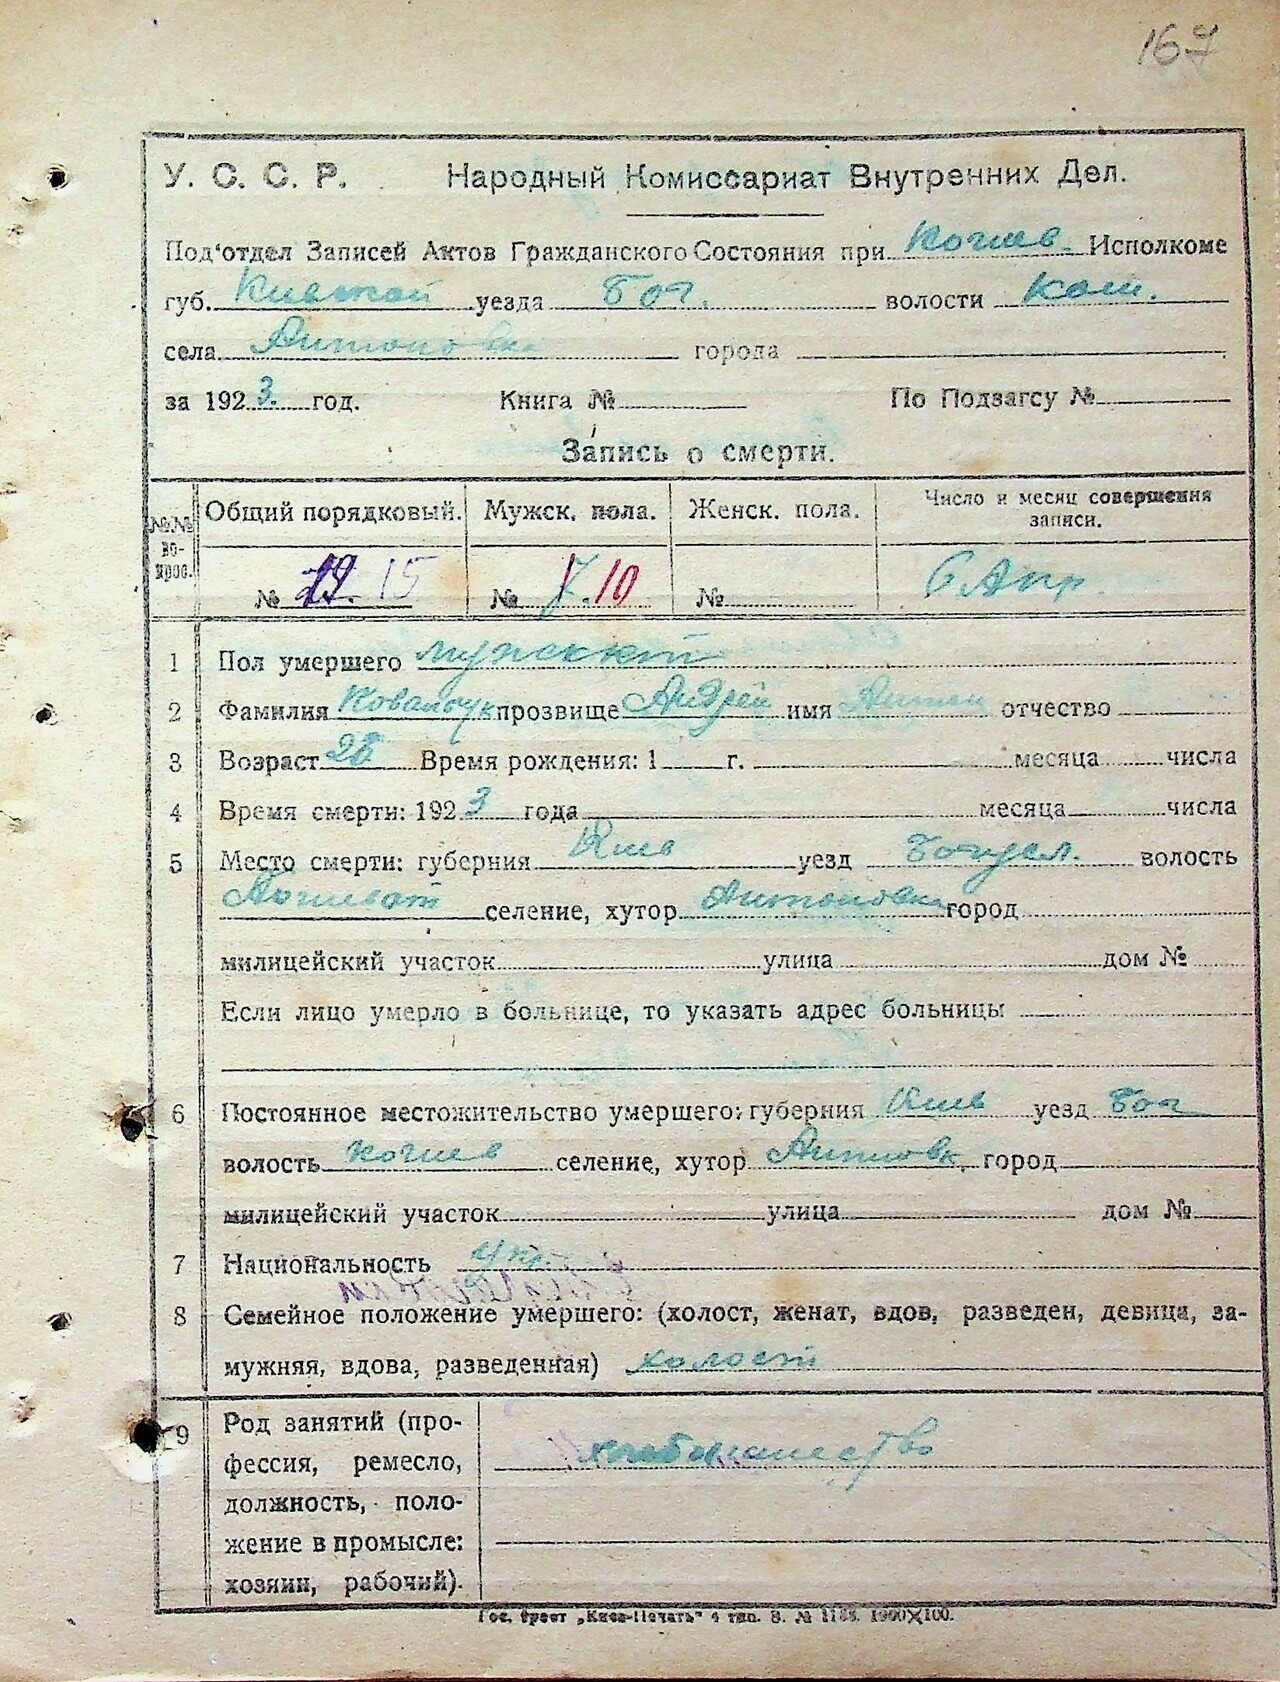 167
У. С. С. Р. Народный Комиссариат Внутренних Дел.
Под'отдел Записей Актов Гражданского Состояния при Исполкоме
губ. Киевской уезда Бог. волости
села Антоновка города
за 1923. год. Книга № По Подзагсу №
Запись о смерти.
№№ во-прос. Общий порядковый. Мужск. пола. Женск. пола. Число и месяц совершения записи.
№ 15 № 7. 10 № 6 Апр.
1 Пол умершего мужский
2 Фамилия Ковальчук прозвище Андрей имя Антон отчество
3 Возраст Время рождения: 1 г. месяца числа
4 Время смерти: 1923 года месяца числа
5 Место смерти: губерния Киев уезд волость
селение, хутор Антоновка город
милицейский участок улица дом №
Если лицо умерло в больнице, то указать адрес больницы
6 Постоянное местожительство умершего: губерния Киев уезд Бог
волость селение, хутор город
милицейский участок улица дом №
7 Национальность укр.
8 Семейное положение умершего: (холост, женат, вдов, разведен, девица, за-
мужняя, вдова, разведенная) холост
9 Род занятий (про-
фессия, ремесло,
должность, поло-
жение в промысле:
хозяин, рабочий).
Гос. трест „Киев-Печать" 4 тип. З. №